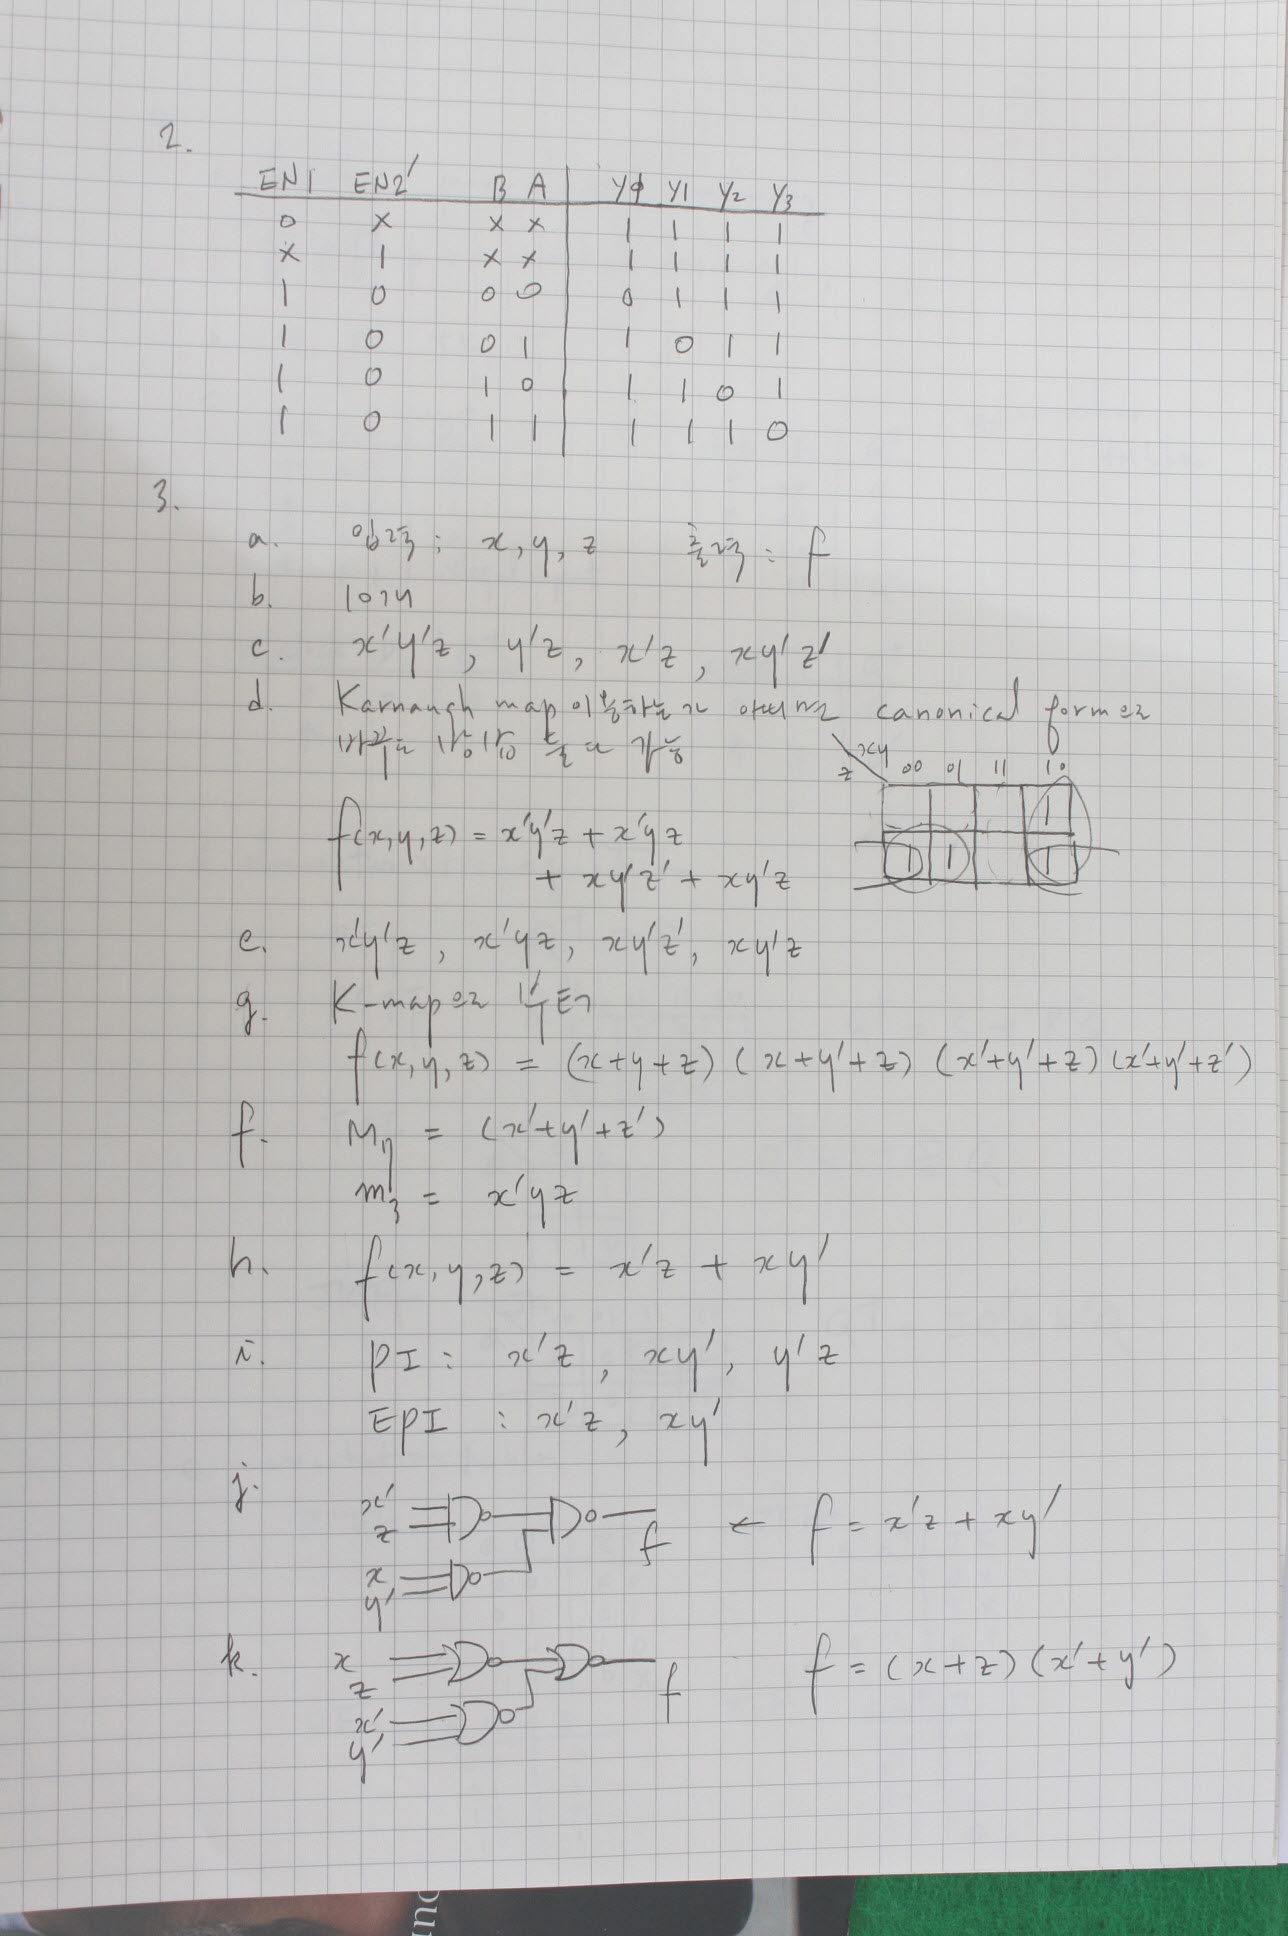 2.
EN1 EN2' B A Yφ Y1 Y2 Y3
0 x x x 1 1 1 1
x 1 x x 1 1 1 1
1 0 0 0 0 1 1 1
1 0 0 1 1 0 1 1
1 0 1 0 1 1 0 1
1 0 1 1 1 1 1 0
3.
a. 입력 : x, y, z 출력 : f
b. 10개
c. x'y'z, y'z, x'z, xy'z'
d. Karnaugh map 이용하는가 아니면 canonical form으로
바꾸는 방법을 쓸 수 가능
xy
z 00 01 11 10
1
1 1 1
f(x,y,z) = x'y'z + x'yz
+ xy'z' + xy'z
e. x'y'z, x'yz, xy'z', xy'z
g. K-map으로 부터
f(x,y,z) = (x+y+z)(x+y'+z)(x'+y'+z)(x'+y'+z')
f. M7 = (x'+y'+z')
m3 = x'yz
h. f(x,y,z) = x'z + xy'
i. PI : x'z, xy', y'z
EPI : x'z, xy'
j.
x'
z
x
y'
f ← f = x'z + xy'
k.
x
z
x'
y'
f f = (x+z)(x'+y')